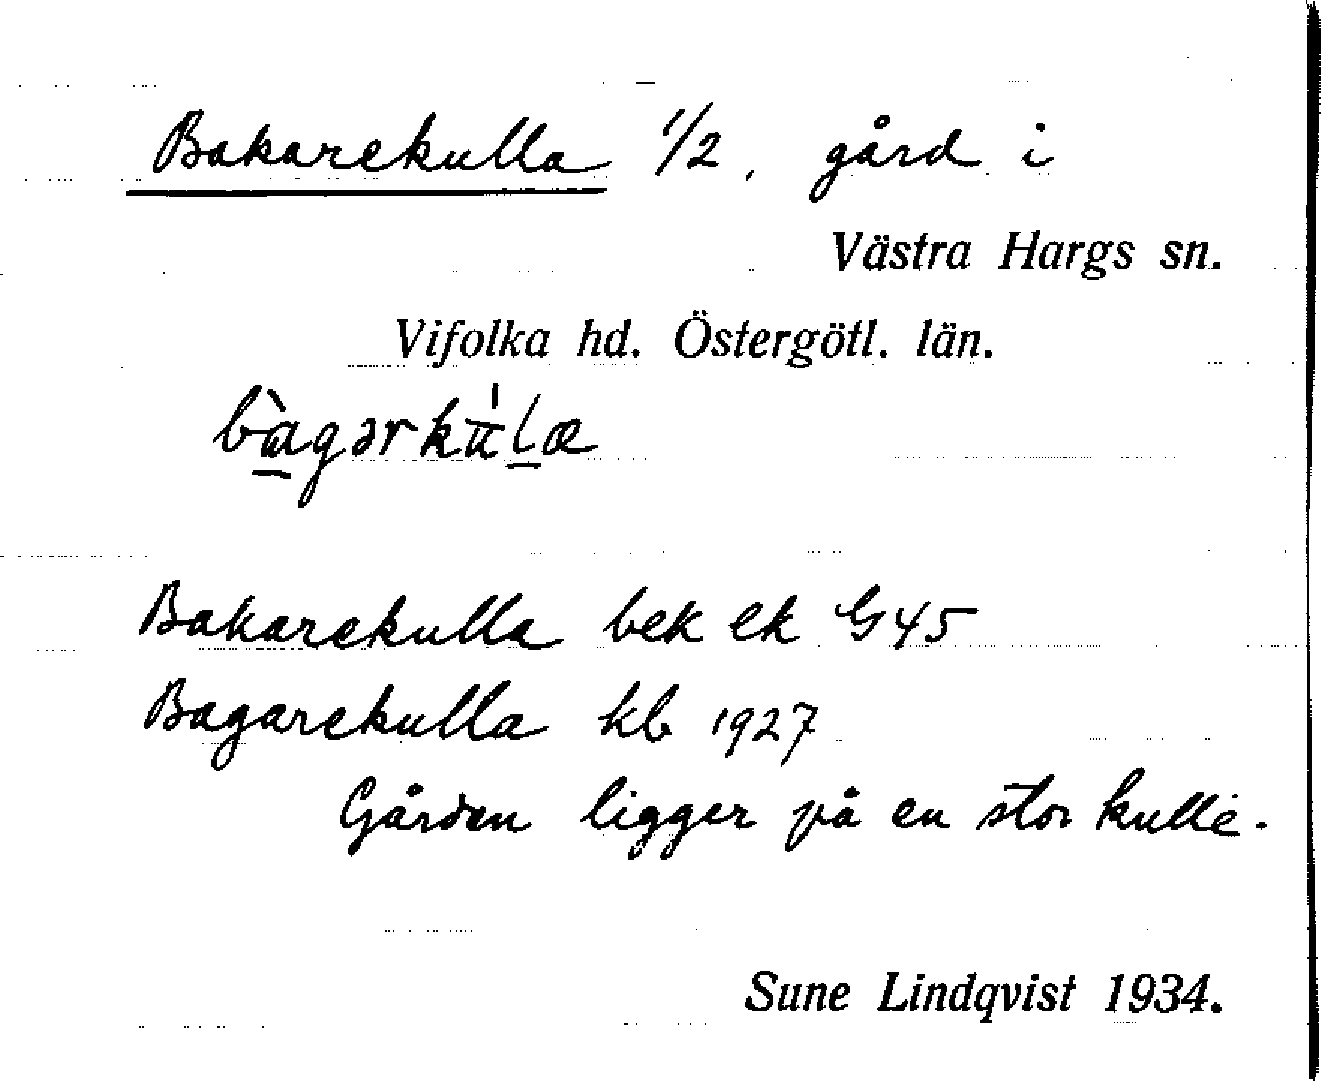 Bakarekulla 1/2, gård i
Västra Hargs sn.
Vifolka hd. Östergötl. län.
bàgərkú̄læ
Bakarekulla bek ek G45
Bagarekulla kb 1927
Gården ligger på en stor kulle.
Sune Lindqvist 1934.